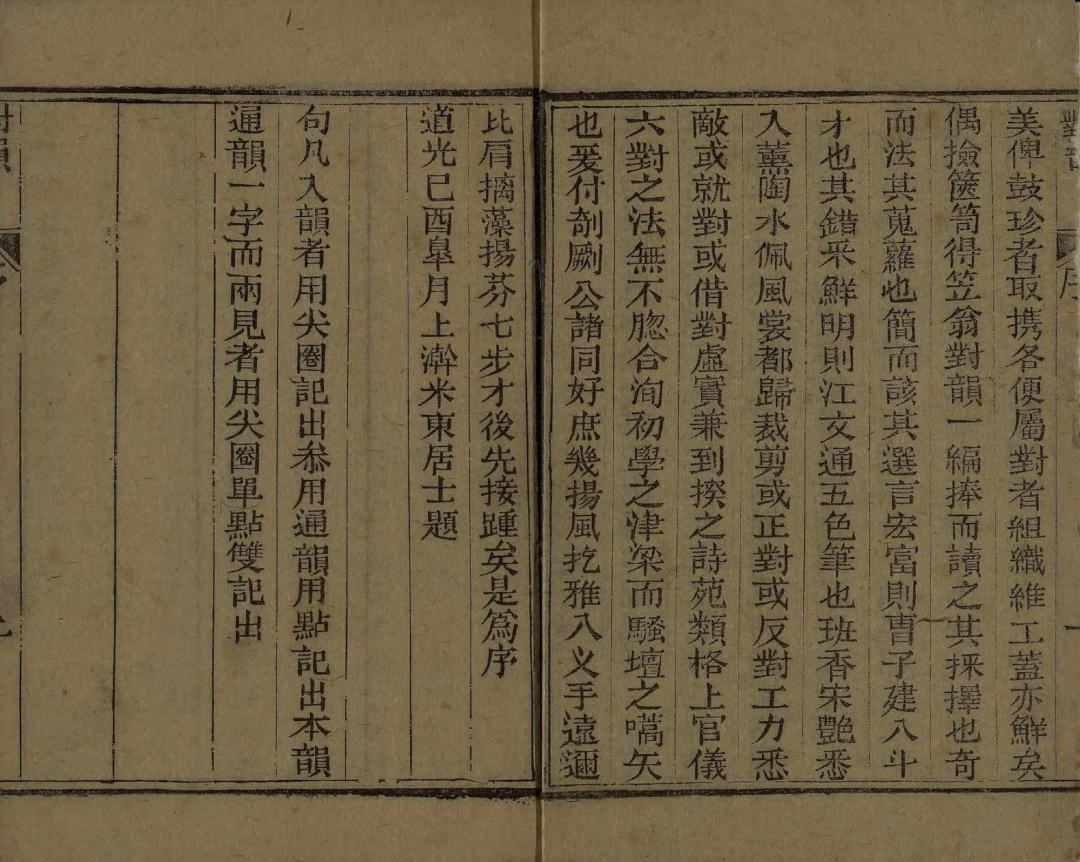 美俾鼓珍者取携各便屬對者組織維工蓋亦鮮矣
偶撿篋笥得笠翁對韻一編捧而讀之其採擇也奇
而法其蒐蘿也簡而該其選言宏富則曹子建八斗
才也其錯采鮮明則江文通五色筆也班香宋艷悉
入薰陶水佩風裳都歸裁剪或正對或反對工力悉
敵或就對或借對虛實兼到揆之詩苑類格上官儀
六對之法無不脗合洵初學之津梁而騷壇之嚆矢
也爰付剞劂公諸同好庶幾揚風扢雅八义手遠邇
比肩摛藻揚芬七步才後先接踵矣是為序
道光己酉皐月上澣米東居士題
句凡入韻者用尖圈記出叅用通韻用點記出本韻
通韻一字而兩見者用尖圈單點雙記出